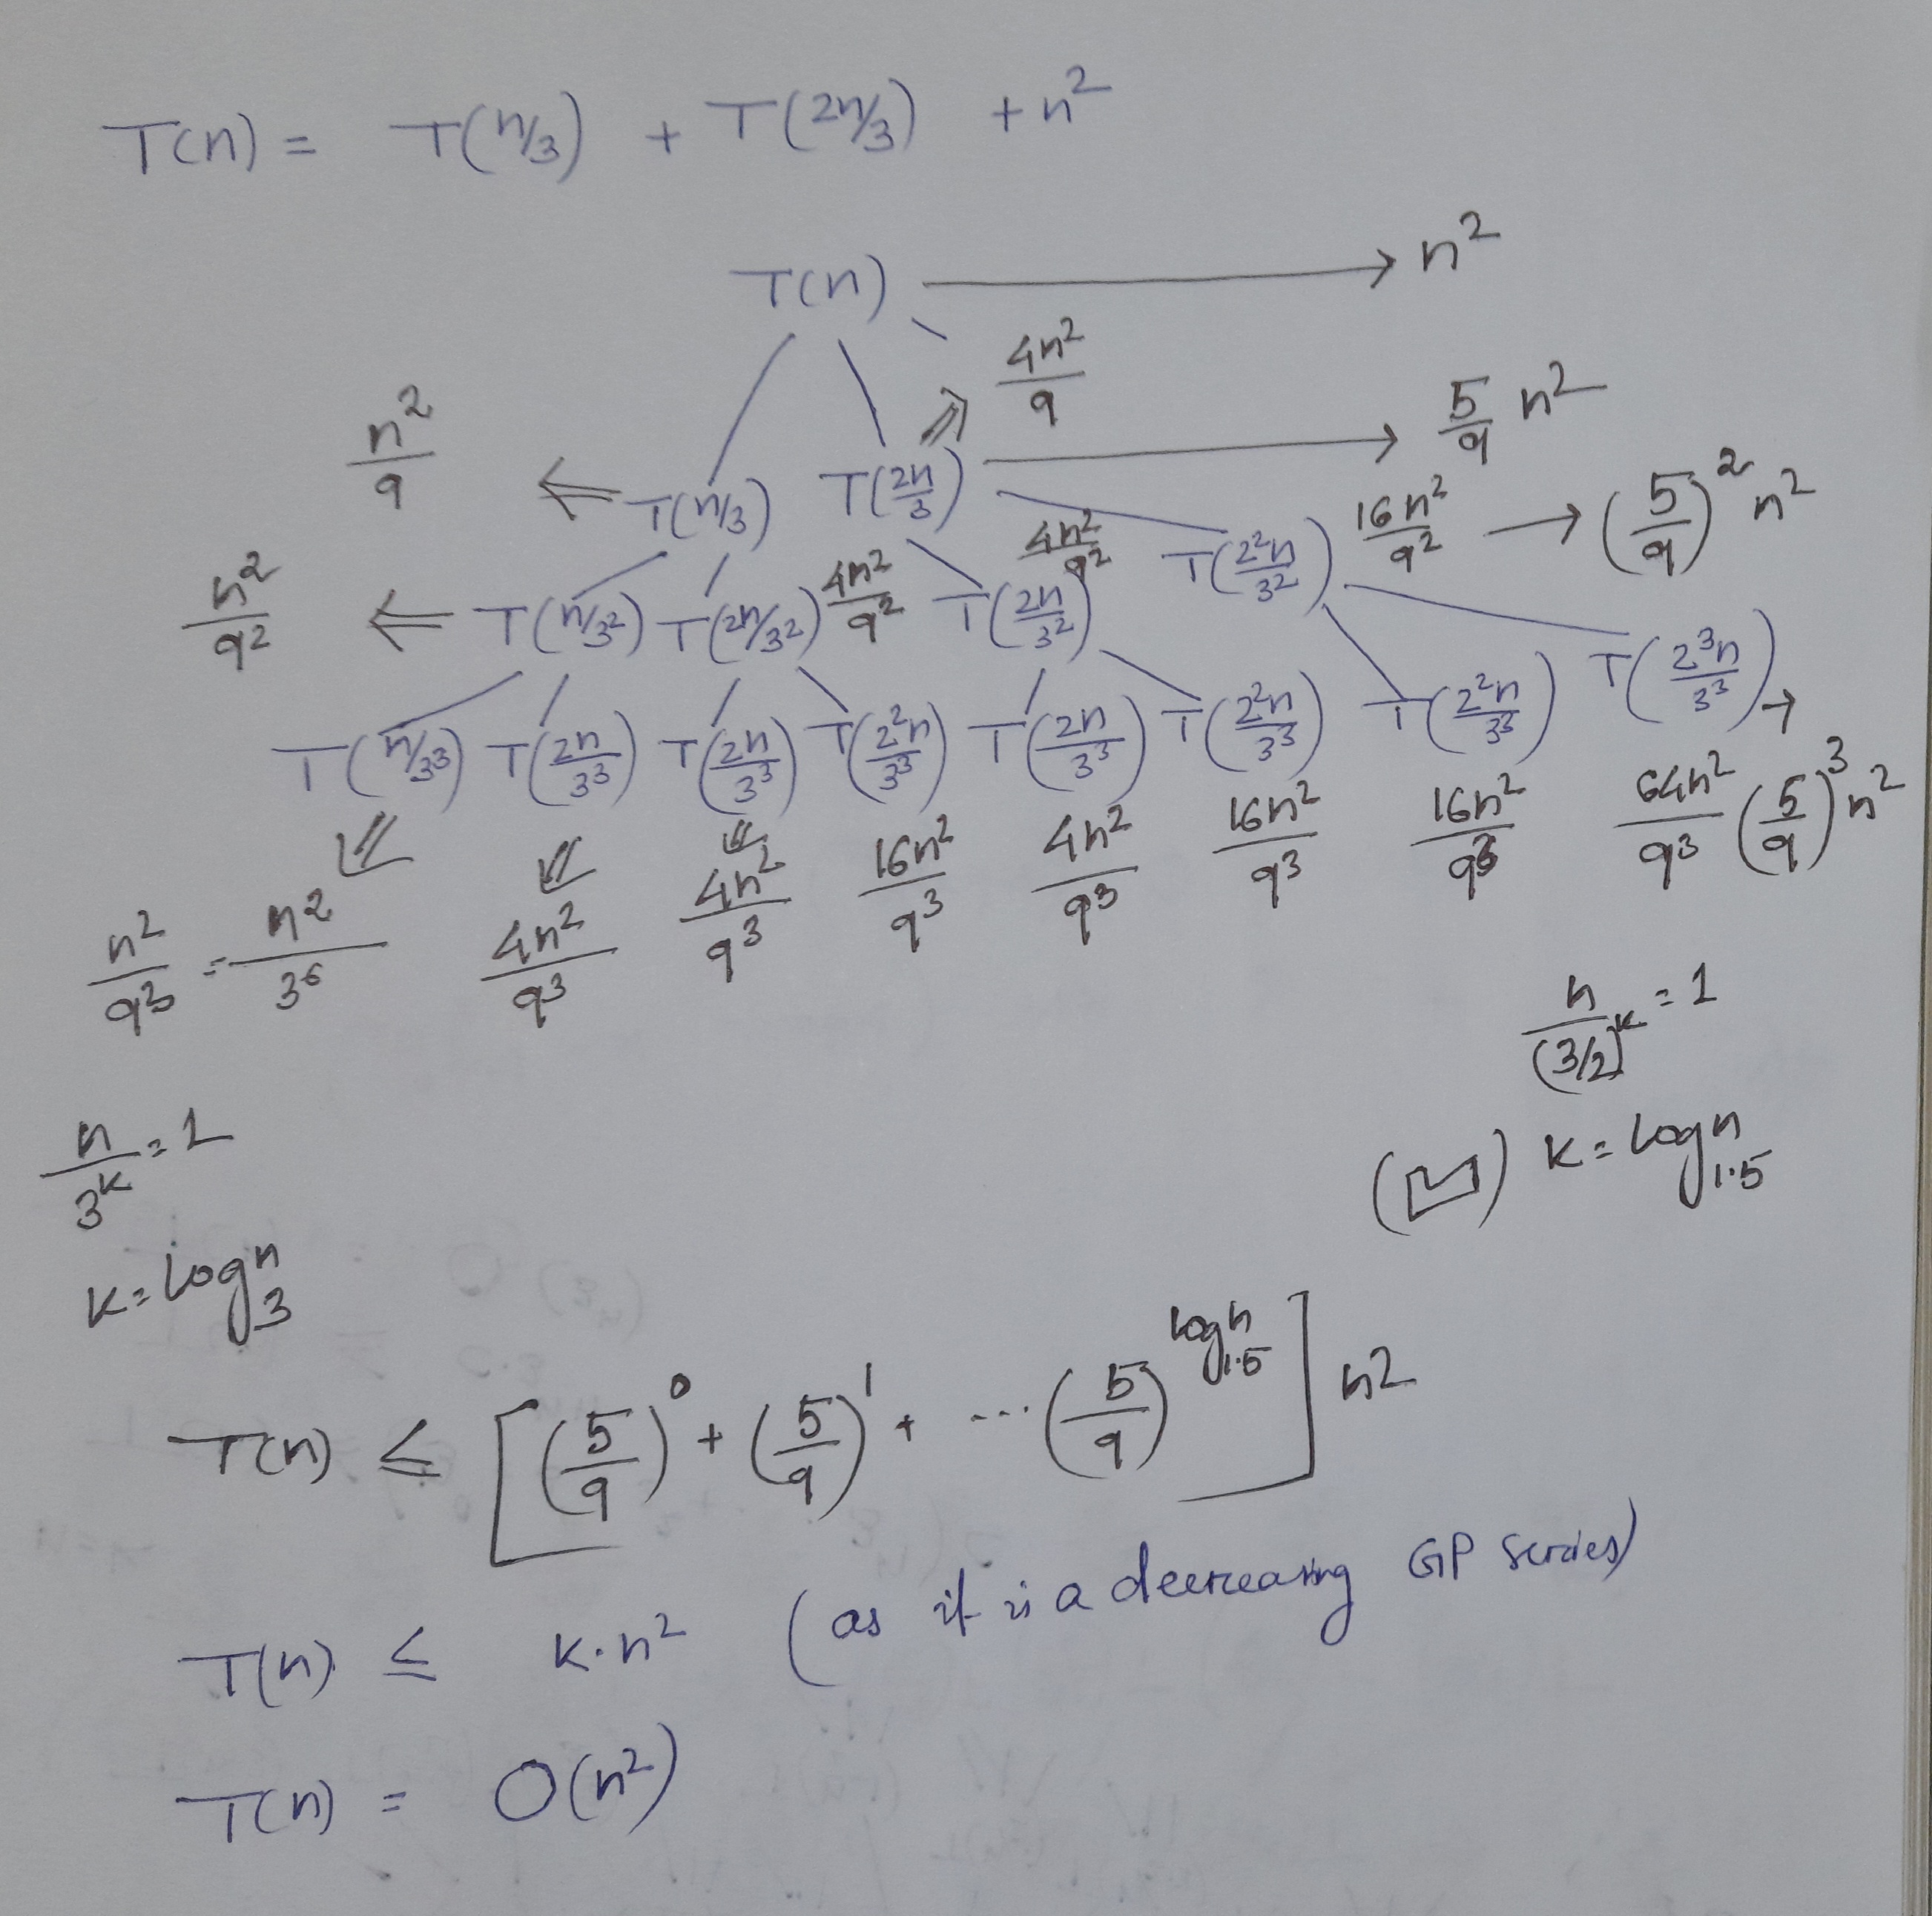 T(n) = T(n/3) + T(2n/3) + n²
T(n) → n²
n²/9 ⇐ T(n/3) T(2n/3) ⇒ 4n²/9 → 5/9 n²
n²/9² ⇐ T(n/3²) T(2n/3²) 4n²/9² T(2n/3²) 4n²/9² T(2²n/3²) 16n²/9² → (5/9)² n²
T(n/3³) T(2n/3³) T(2n/3³) T(2²n/3³) T(2n/3³) T(2²n/3³) T(2²n/3³) T(2³n/3³) →
n²/9³ = n²/3⁶ 4n²/9³ 4n²/9³ 16n²/9³ 4n²/9³ 16n²/9³ 16n²/9³ 64n²/9³ (5/9)³ n²
n/(3/2)^k = 1
n/3^k = 1
k = log n 1.5
k = log n 3
T(n) ≤ [(5/9)⁰ + (5/9)¹ + ... (5/9)^(log n 1.5)] n²
T(n) ≤ k.n² (as it is a decreasing GP series)
T(n) = O(n²)